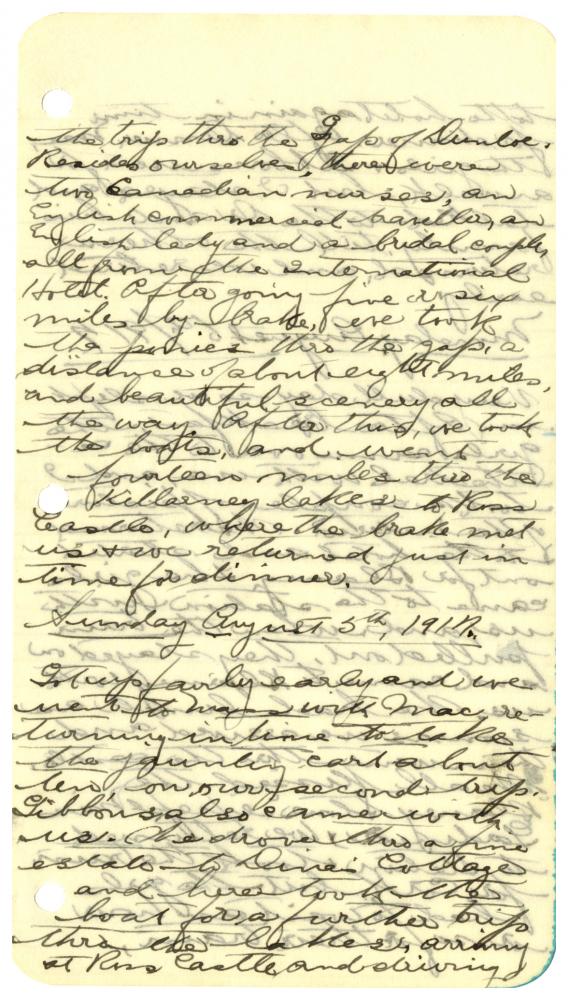 the trip thro the Gap of Dunloe.
Besides ourselves, there were
two Canadian nurses, an
English commercial traveller, an
English lady and a bridal couple,
all from the International
Hotel. After going five or six
miles by brake, we took
the ponies thro the gap, a
distance of about eight miles,
and beautiful scenery all
the way. After this, we took
the boats, and went
fourteen miles thro the
Killarney lakes to Ross
Castle, where the brake met
us & we returned just in
time for dinner.
Sunday August 5th, 1917.
Got up fairly early and we
went to mass with Mac, re-
turning in time to take
the jaunting cart about
ten, on our second trip.
Gibbons also came with
us. We drove thro a fine
estate to Dinis Cottage
and here took the
boat for a further trip
thro the lakes, arriving
at Ross Castle and driving